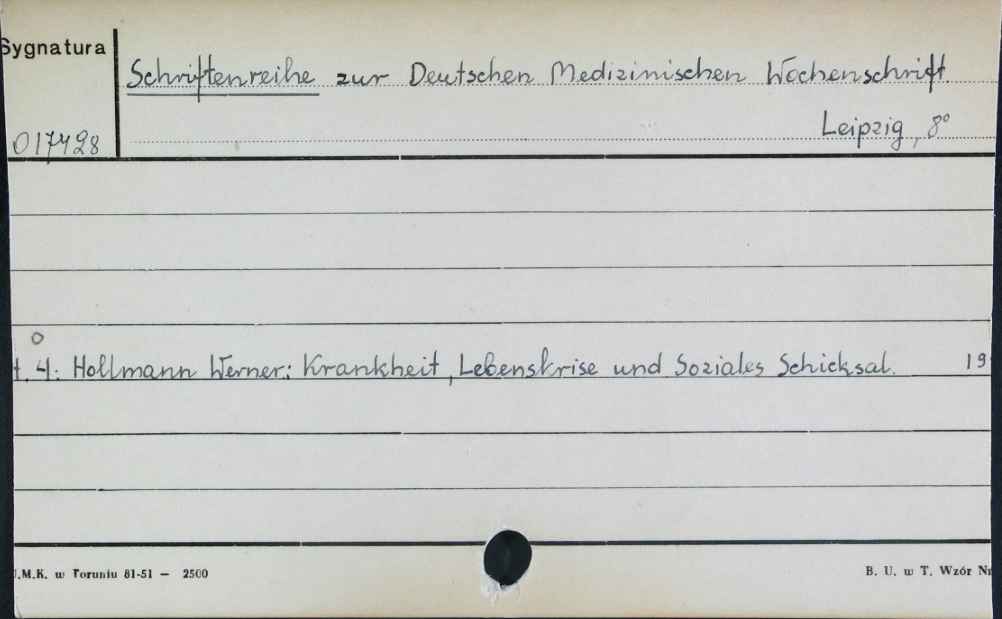 Sygnatura
Schriftenreihe zur Deutschen Medizinischen Wochenschrift
Leipzig, 8°
017428
4: Hollmann Werner: Krankheit, Lebenskrise und Soziales Schicksal. 19
.M.K. w Toruniu 81-51 — 2500
B. U. w T. Wzór Nr